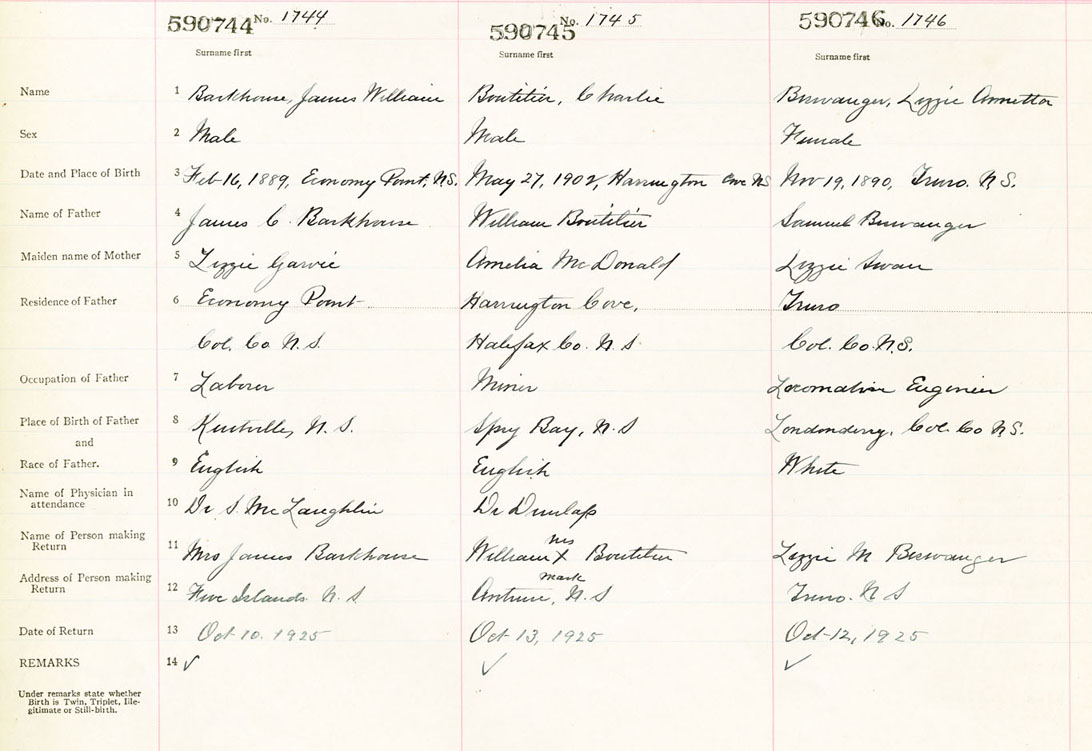 590744 No. 1744 590745 No. 1745 590746 No. 1746
Surname first Surname first Surname first
Name 1 Barkhouse, James William Boutilier, Charlie Biswanger, Lizzie Annetta
Sex 2 Male Male Female
Date and Place of Birth 3 Feb 16, 1889, Economy Point, N.S. May 27, 1902, Harrington Cove NS Nov 19, 1890, Truro. N.S.
Name of Father 4 James C. Barkhouse William Boutilier Samuel Biswanger
Maiden name of Mother 5 Lizzie Garvie Amelia McDonald Lizzie Swan
Residence of Father 6 Economy Point Harrington Cove, Truro
Col. Co. N.S. Halifax Co. N.S. Col. Co. N.S.
Occupation of Father 7 Laborer Miner Locomotive Engineer
Place of Birth of Father 8 Kentville, N.S. Spry Bay, N.S Londonderry, Col. Co N.S.
and
Race of Father. 9 English English White
Name of Physician in
attendance 10 Dr S. McLaughlin Dr Dunlap
Name of Person making
Return 11 Mrs James Barkhouse William X Boutilier Lizzie M Biswanger
mark
Address of Person making
Return 12 Five Islands N.S N.S Truro. N S
Date of Return 13 Oct 10. 1925 Oct 13, 1925 Oct 12, 1925
REMARKS 14 ✓ ✓ ✓
Under remarks state whether
Birth is Twin, Triplet, Ille-
gitimate or Still-birth.